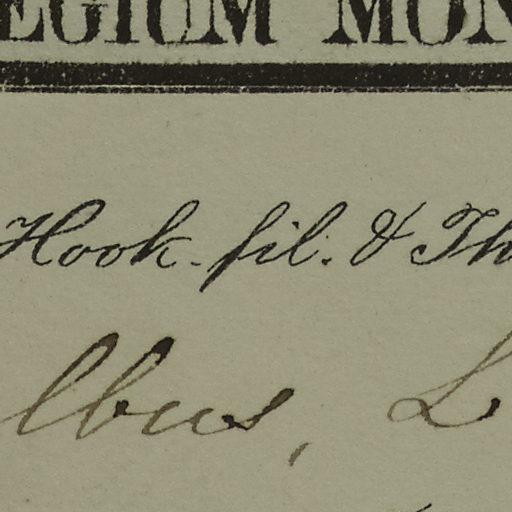 EGIUM MON
Hook. fil. & Th
lbus, L